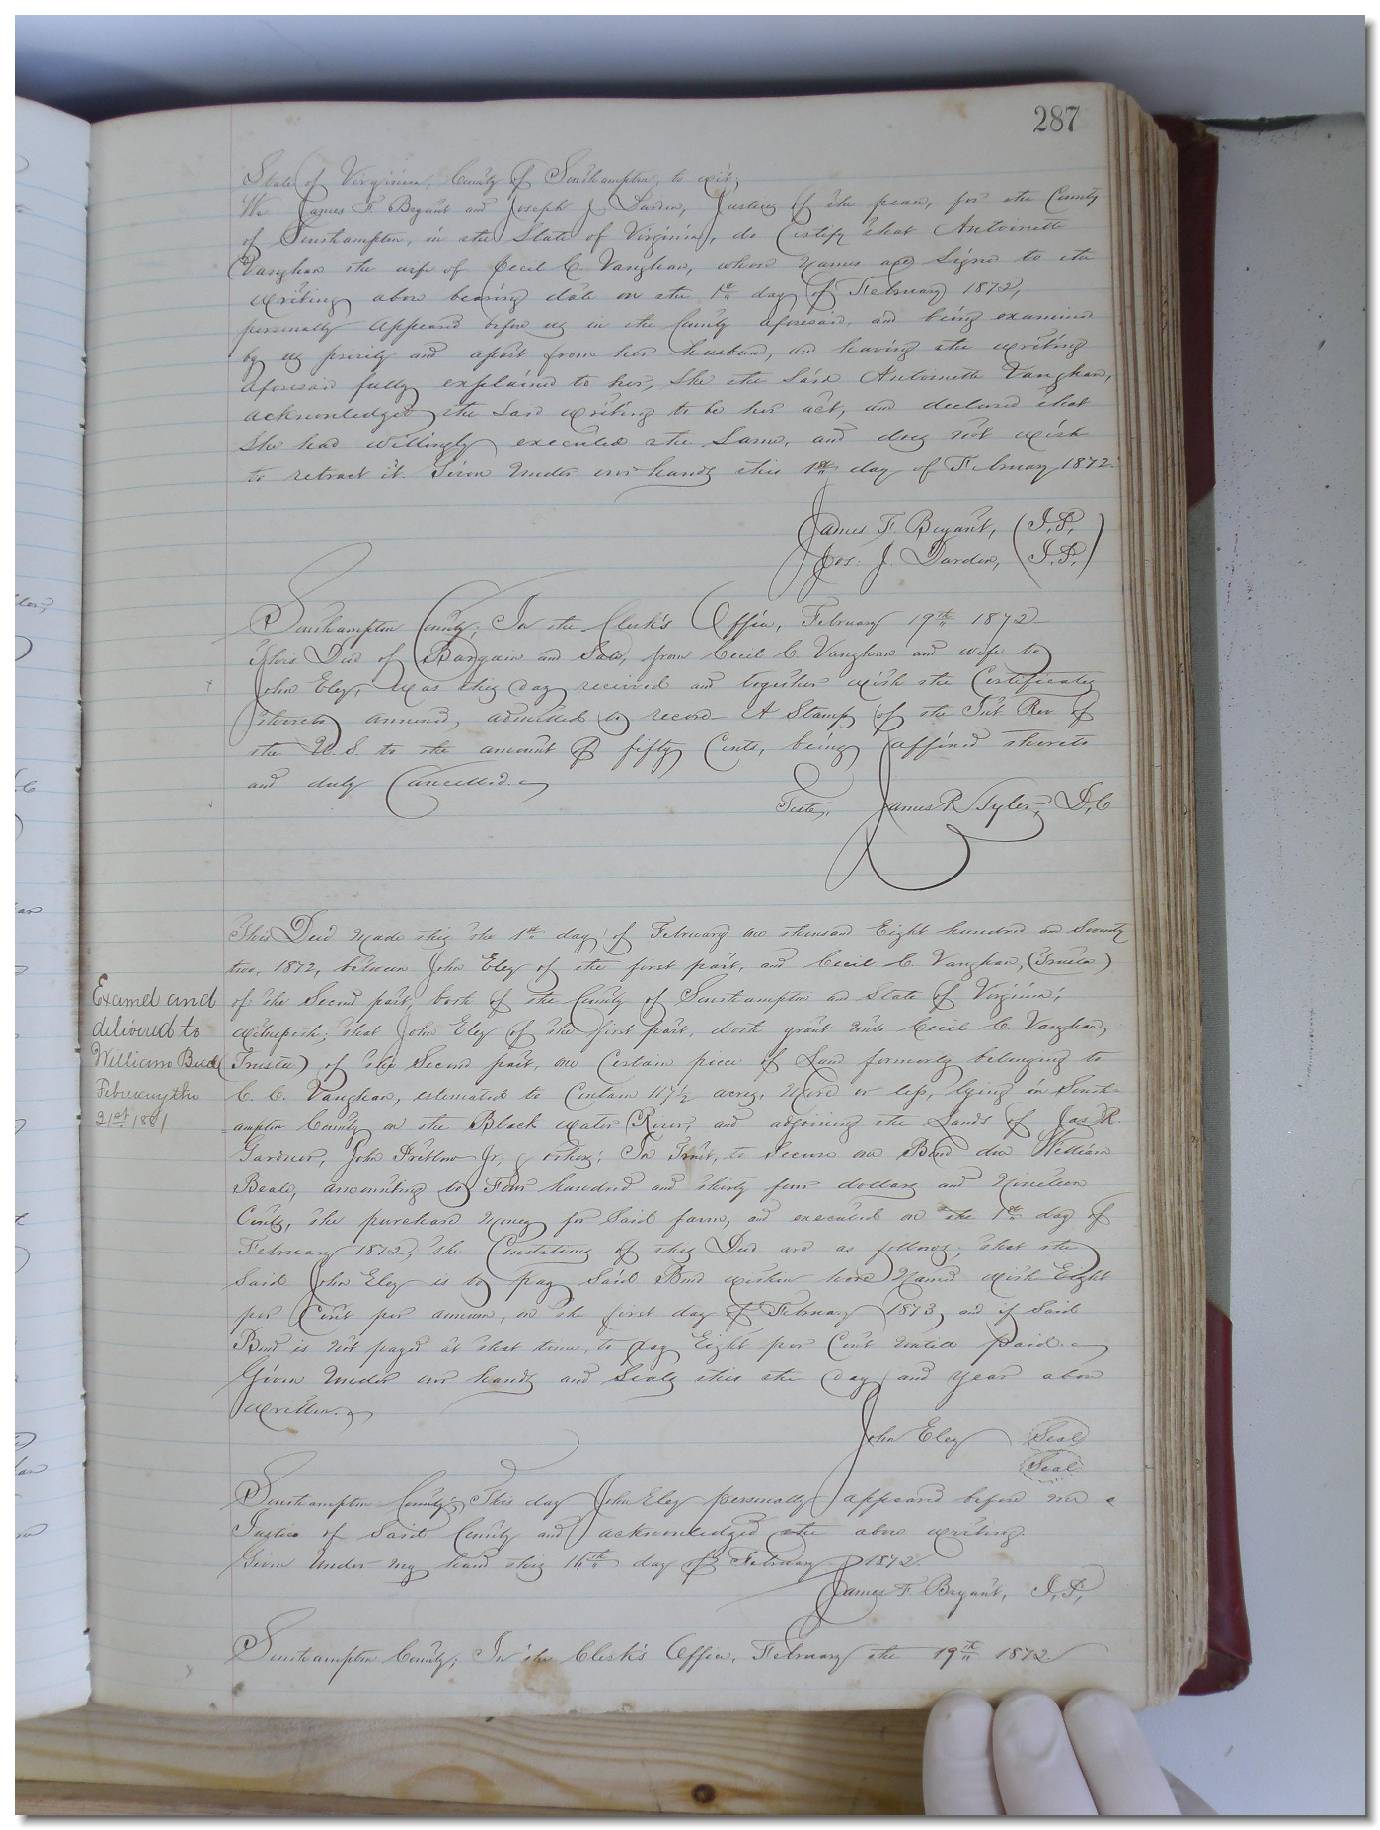 287
State of Virginia, County of Southampton, to wit;
We James F. Bryant and Joseph J. Darden, Justices of the peace, for the County
of Southampton, in the State of Virginia, do Certify that Antoinette
Vaughan the wife of Cecil C. Vaughan, whose names are Signed to the
writing above bearing date on the 1st day of February 1872,
personally appeared before us in the County aforesaid, and being examined
by us privily and apart from her husband, and having the writing
aforesaid fully explained to her, She the Said Antoinette Vaughan,
acknowledged the Said writing to be her act, and declared that
She had willingly executed the Same, and does not wish
to retract it. Given under our hands this 1st day of February 1872.
James F. Bryant, (J.P.)
Jos. J. Darden, (J.P.)
Southampton County; In the Clerk's Office, February 19th 1872
This Deed of Bargain and Sale, from Cecil C. Vaughan and wife to
John Eley, was this day received and together with the Certificates
thereto annexed, admitted to record. A Stamp of the Int Rev of
the U.S. to the amount of fifty Cents, being affixed thereto
and duly Cancelled.
Teste, James R Tyler, D,C
This Deed made this the 1st day of February one thousand Eight hundred and Seventy
two, 1872, between John Eley of the first part, and Cecil C. Vaughan, (Trustee)
of the Second part, both of the County of Southampton and State of Virginia;
witnesseth; that John Eley of the first part, doth grant unto Cecil C. Vaughan,
(Trustee) of the Second part, one Certain piece of Land formerly belonging to
C. C. Vaughan, estimated to Contain 117½ acres, more or less, lying in South-
ampton County on the Black water River, and adjoining the Lands of Jas R.
Gardner, John Pretlow Jr, & others; In Trust, to Secure one Bond due William
Beale, amounting to Four hundred and thirty four dollars and Nineteen
Cents, the purchase money for Said farm, and executed on the 1st day of
February 1872, the Conditions of this Deed are as follows; that the
Said John Eley is to pay Said Bond within here Named with Eight
per Cent per annum, on the first day of February 1873, and if Said
Bond is not payed at that time, to pay Eight per Cent untill paid.
Given under our hands and Seals this the day and year above
written.
John Eley Seal
Seal
Examd and
delivered to
William
February the
21st 1881
Southampton County; This day John Eley personally appeared before me a
Justice of Said County and acknowledged the above writing.
Given under my hand this 16th day of February 1872.
James F. Bryant, J.P.
Southampton County; In the Clerk's Office, February the 19th 1872